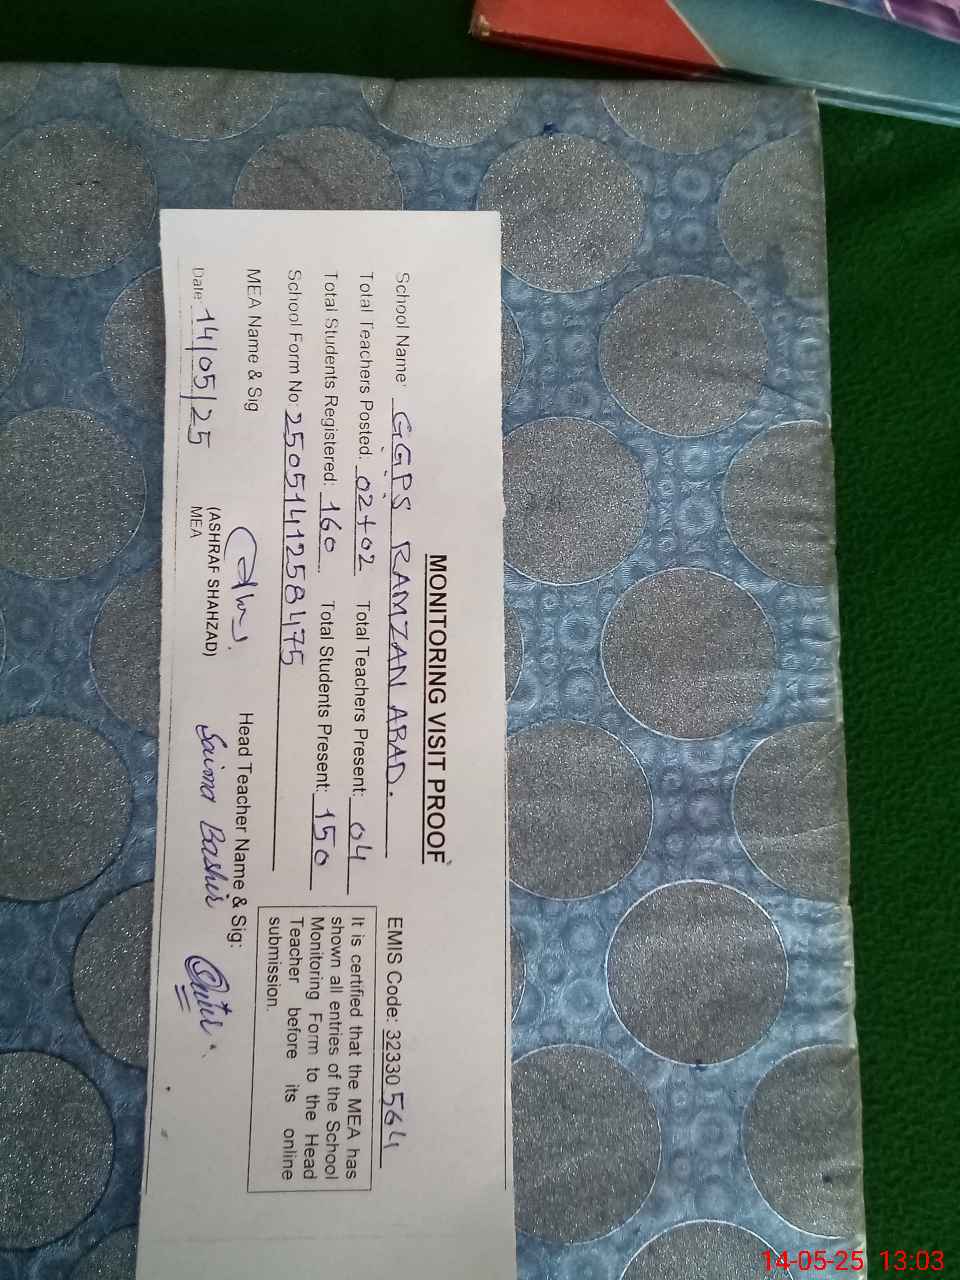 MONITORING VISIT PROOF
School Name: GGPS RAMZAN ABAD. EMIS Code: 32330564
Total Teachers Posted: 02+02 Total Teachers Present: 04
Total Students Registered: 160 Total Students Present: 150
School Form No: 250514125 8475
It is certified that the MEA has
shown all entries of the School
Monitoring Form to the Head
Teacher before its online
submission.
MEA Name & Sig Head Teacher Name & Sig:
(ASHRAF SHAHZAD) Saima Bashir
MEA
Date: 14/05/25
14-05-25 13:03